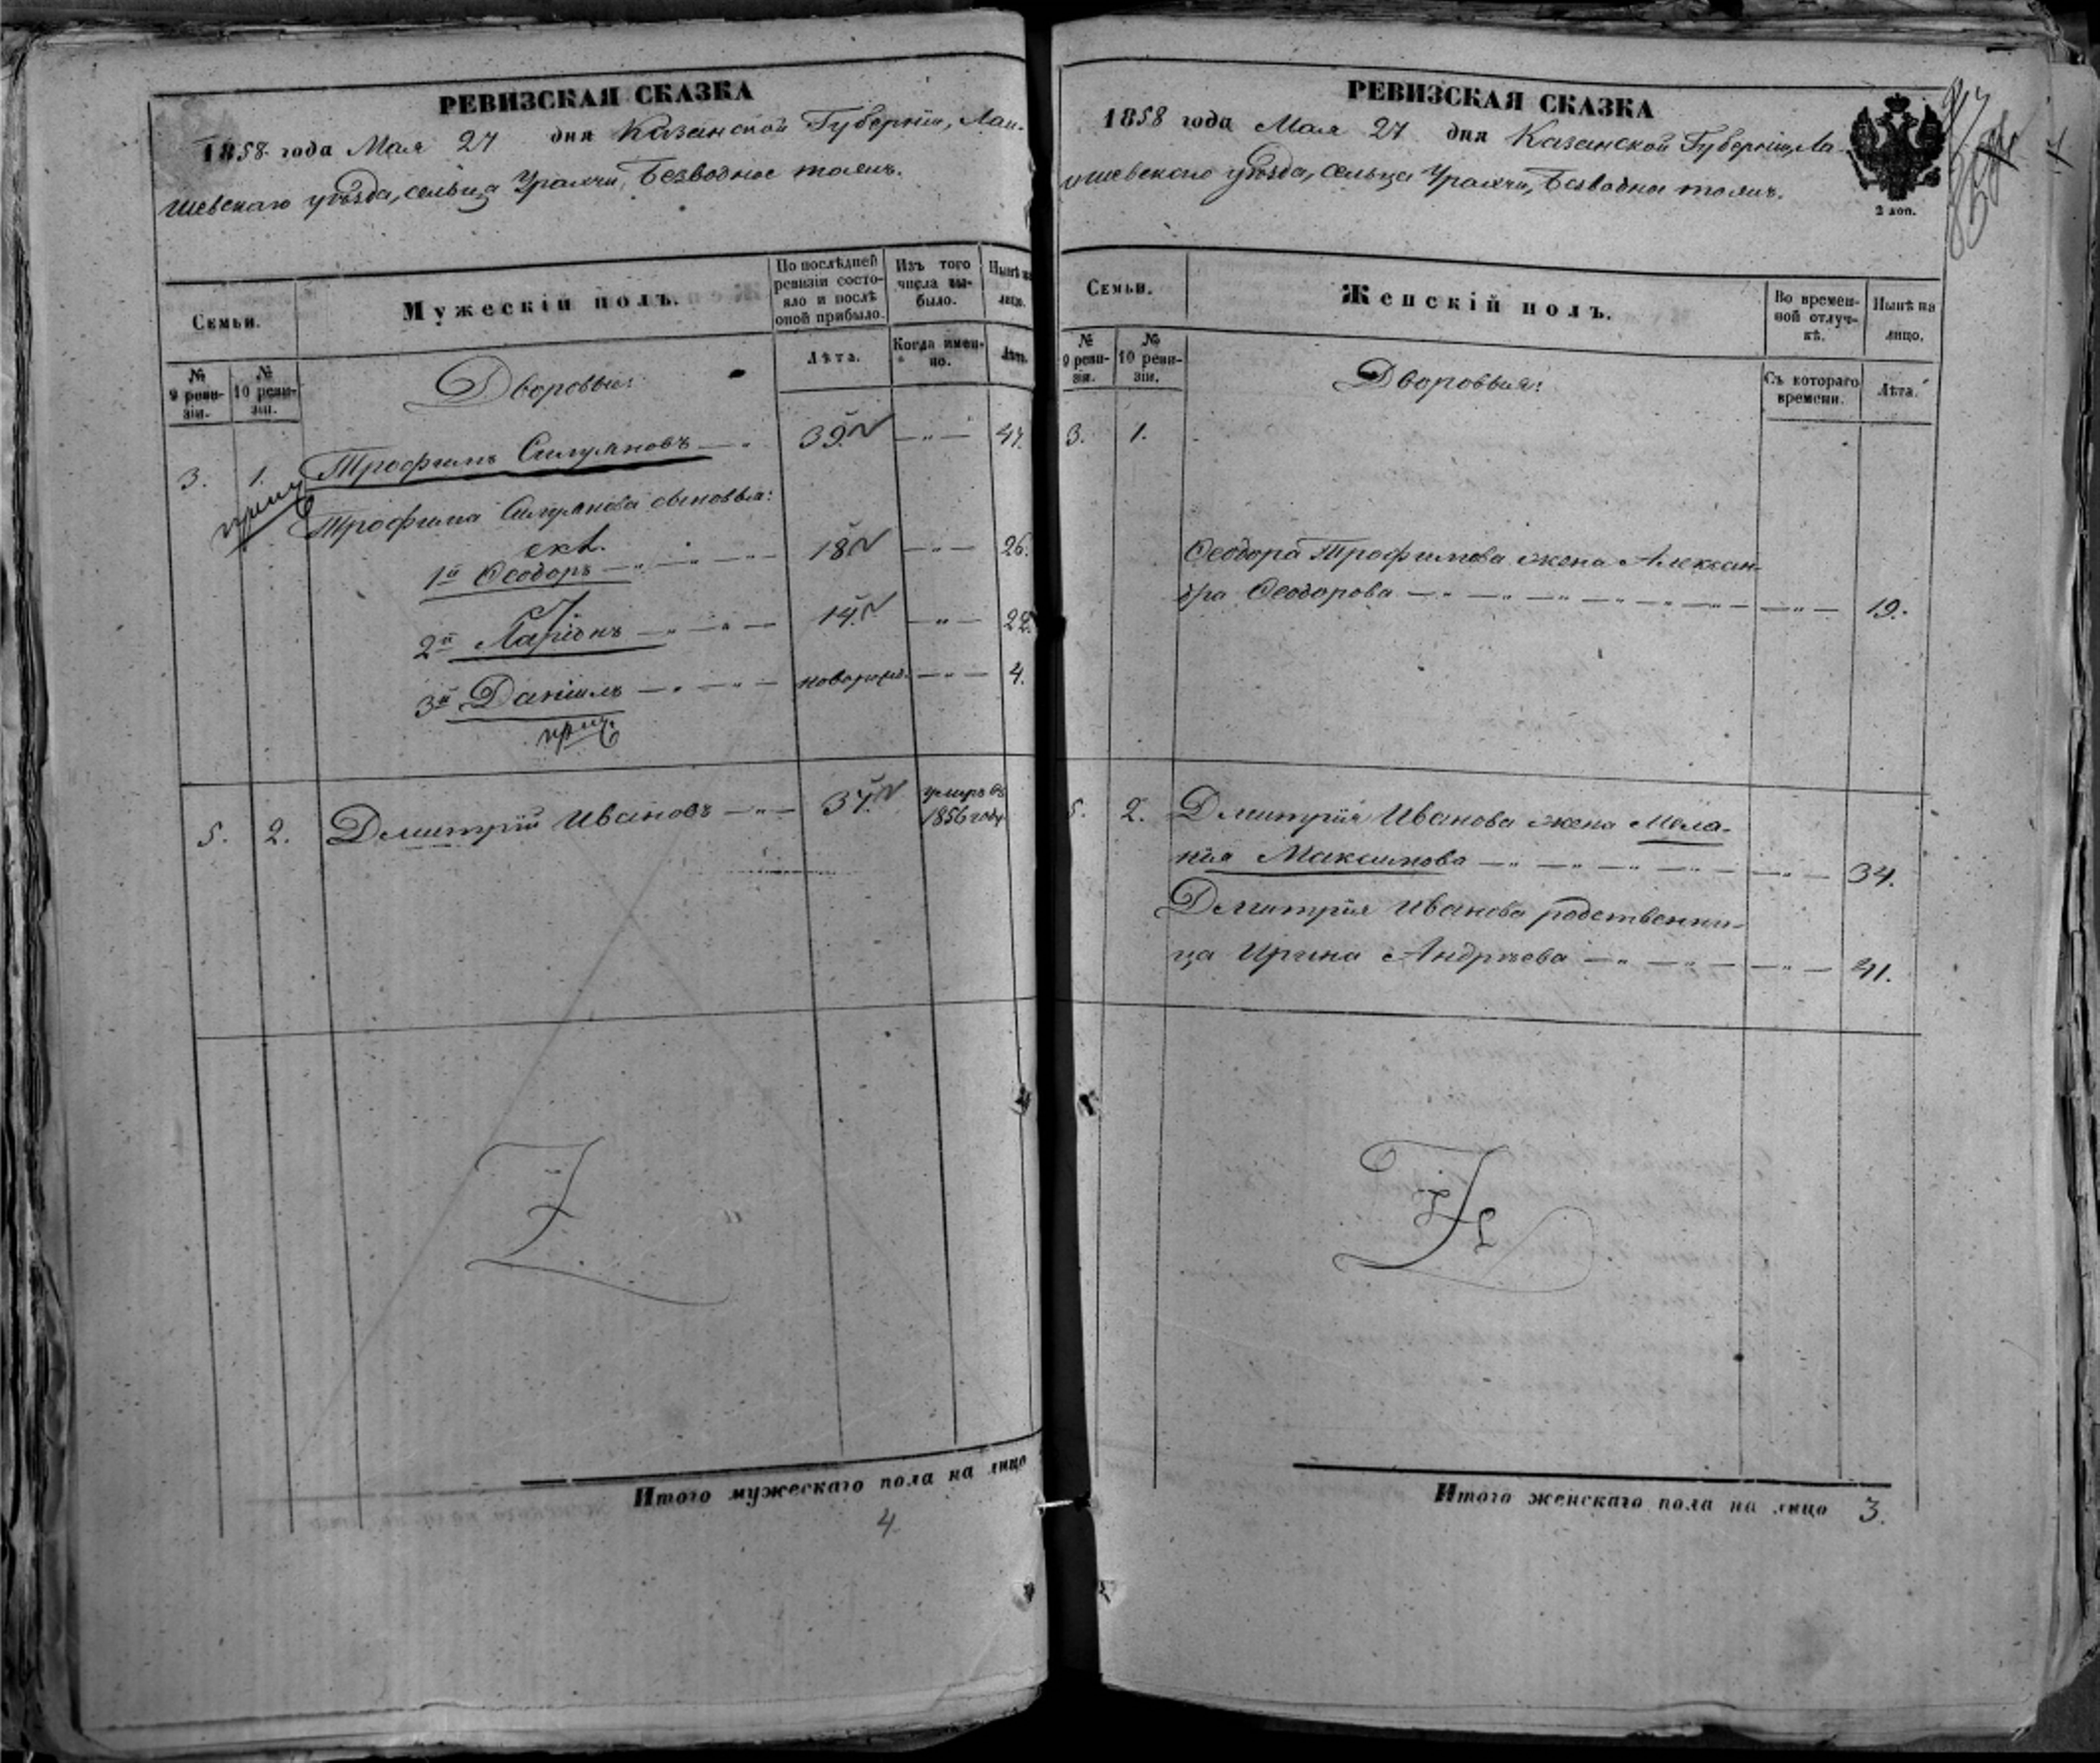 РЕВИЗСКАЯ СКАЗКА
1858 года Мая 27 дня Казанской Губерніи, Лаи-
шевскаго уѣзда, сельца Урахчи, Безводное тожъ.
Семьи.
Мужескій полъ.
По послѣдней ревизіи состо-яло и послѣ оной прибыло.
Изъ того числа вы-было.
Нынѣ на лицо.
№ 9 реви-зіи.
№ 10 реви-зіи.
Лѣта.
Когда имен-но.
Лѣта.
Дворовые:
3. 1. Трофимъ Силуяновъ — " 39. — " — 47.
Трофима Силуянова сыновья:
1й Ѳеодоръ — " — " — " — 18 — " — 26.
2й Ларіонъ — " — " — 14. — " — 22.
3й Даніилъ — " — " — новорожд. — " — 4.
5. 2. Дмитрій Ивановъ — " — 37. умеръ въ
1856 году
Итого мужескаго пола на лицо
4
РЕВИЗСКАЯ СКАЗКА
1858 года Мая 27 дня Казанской Губерніи, Ла-
ишевскаго уѣзда, сельца Урахчи, Безводное тожъ.
2 коп.
Семьи.
Женскій полъ.
Во времен-ной отлуч-кѣ.
Нынѣ на лицо.
№ 9 реви-зіи.
№ 10 реви-зіи.
Съ котораго времени.
Лѣта.
Дворовыя:
3. 1.
Ѳеодора Трофимова жена Алексан-
дра Ѳеодорова — " — " — " — " — " — " — 19.
5. 2. Дмитрія Иванова жена Мела-
нія Максимова — " — " — " — " — " — 34.
Дмитрія Иванова родственни-
ца Ирина Андрѣева — " — " — " — 41.
Итого женскаго пола на лицо 3.